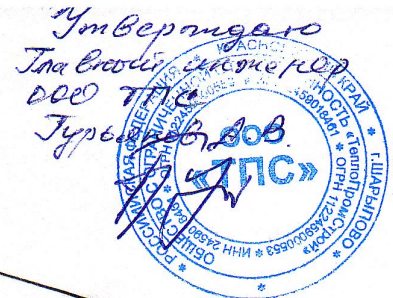 Утверждаю
Главный инженер
ООО ТПС
Гурьянов А.В.
РОССИЙСКАЯ ФЕДЕРАЦИЯ * КРАСНОЯРСКИЙ КРАЙ * г.ШАРЫПОВО *
ОБЩЕСТВО С ОГРАНИЧЕННОЙ ОТВЕТСТВЕННОСТЬЮ «ТеплоПромСтрой»
* ОГРН 1122459000553 * ИНН
ООО
«ТПС»